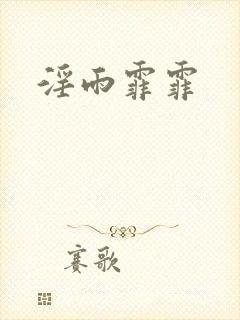 淫雨霏霏
赛歌